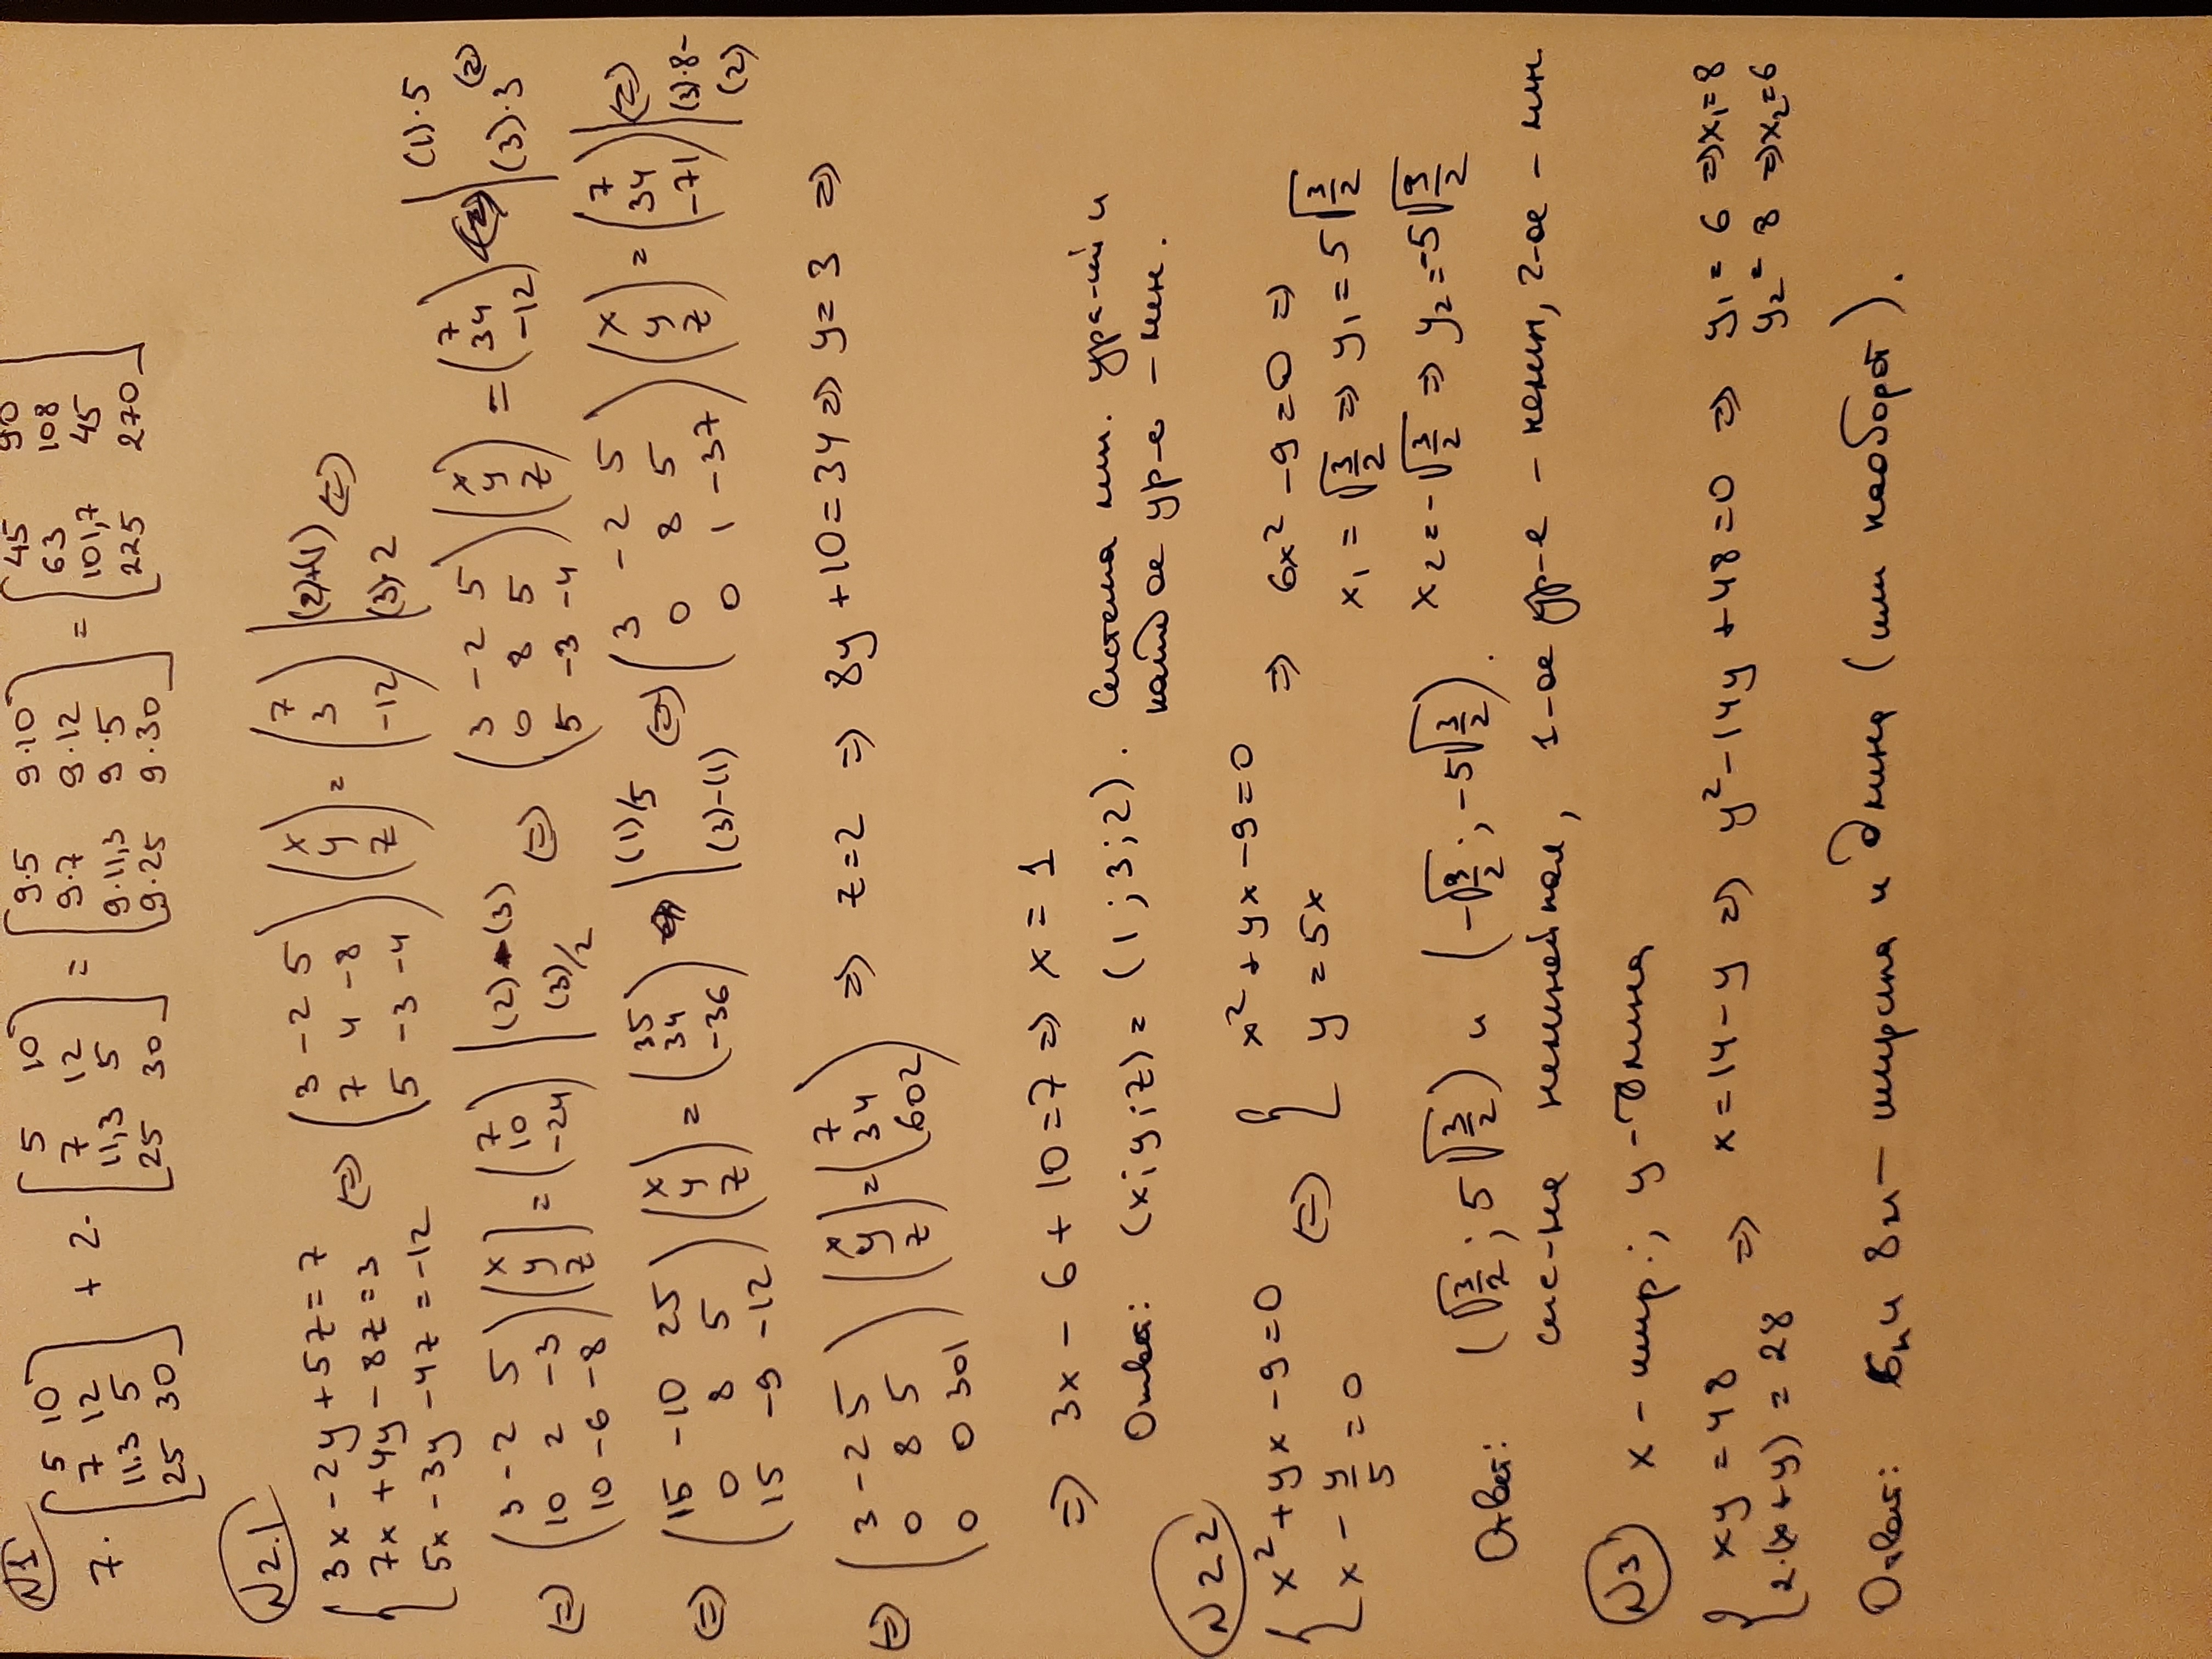 N1
7· [5 10; 7 12; 11.3 5; 25 30] + 2· [5 10; 7 12; 11,3 5; 25 30] = [9·5 9·10; 9·7 9·12; 9·11,3 9·5; 9·25 9·30] = [45 90; 63 108; 101,7 45; 225 270]
N2.1
{3x - 2y + 5z = 7; 7x + 4y - 8z = 3; 5x - 3y - 4z = -12 (=) (3 -2 5; 7 4 -8; 5 -3 -4) (x; y; z) = (7; 3; -12) | (2)+(1); (3)·2 (=)
(=) (3 -2 5; 10 2 -3; 10 -6 -8) (x; y; z) = (7; 10; -24) | (2)-(3); (3)/2 (=) (3 -2 5; 0 8 5; 5 -3 -4) (x; y; z) = (7; 34; -12) | (1)·5; (3)·3 (=)
(=) (15 -10 25; 0 8 5; 15 -9 -12) (x; y; z) = (35; 34; -36) | (1)/5; (3)-(1) (=) (3 -2 5; 0 8 5; 0 1 -37) (x; y; z) = (7; 34; -71) | (=) (3)·8-(2)
(=) (3 -2 5; 0 8 5; 0 0 301) (x; y; z) = (7; 34; 602) => z = 2 => 8y + 10 = 34 => y = 3 =>
=> 3x - 6 + 10 = 7 => x = 1
Ответ: (x; y; z) = (1; 3; 2). Система лин. ура-ий и
каждое ур-е - лин.
N2.2
{x² + yx - 9 = 0; x - y/5 = 0 (=) {x² + yx - 9 = 0; y = 5x => 6x² - 9 = 0 =>
x₁ = √3/2 => y₁ = 5√3/2
x₂ = -√3/2 => y₂ = -5√3/2
Ответ: (√3/2; 5√3/2) и (-√3/2; -5√3/2).
сис-ма нелинейная, 1-ое ур-е - нелин, 2-ое - лин.
N3 x - шир.; y - длина
{xy = 48; 2·(x+y) = 28 => x = 14 - y => y² - 14y + 48 = 0 => y₁ = 6 => x₁ = 8
y₂ = 8 => x₂ = 6
Ответ: 6м и 8м - ширина и длина (или наоборот).